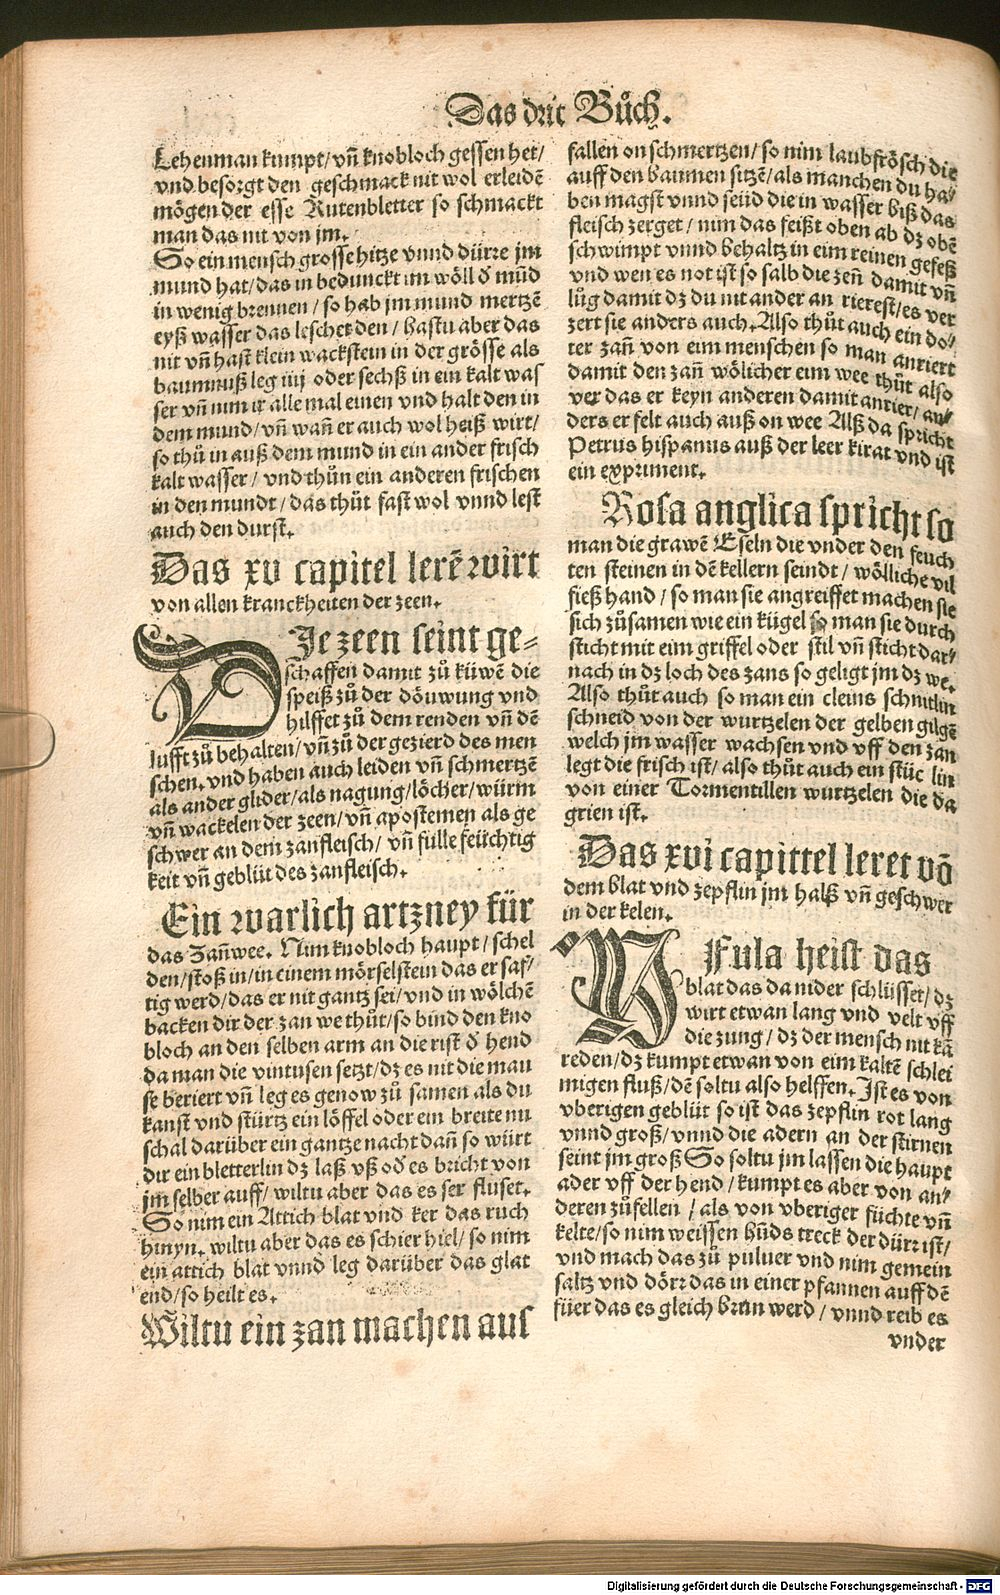 Das drit Bůch.
Lehenman kumpt/ vñ knobloch gessen het/
vnd besorgt den geschmack nit wol erleidē
mögen der esse Rutenbletter so schmackt
man das nit von jm.
So ein mensch grosse hitze vnnd dürre jm
mund hat/ das in bedunckt im wöll d mūd
in wenig brennen/ so hab jm mund mertzē
eyß wasser das leschet den/ hastu aber das
nit vñ hast klein wackstein in der grösse als
baumnuß leg iiij oder sechß in ein kalt was
ser vñ nim ir alle mal einen vnd halt den in
dem mund/ vñ wañ er auch wol heiß wirt/
so thů in auß dem mund in ein ander frisch
kalt wasser/ vnd thůn ein anderen frischen
in den mundt/ das thůt fast wol vnnd lest
auch den durst.
Das xv capitel lerē wirt
von allen kranckheiten der zeen.
DJe zeen seint ge-
schaffen damit zů küwē die
speiß zů der döuwung vnd
hilffet zů dem renden vñ dē
lufft zů behalten/ vñ zů der gezierd des men
schen. vnd haben auch leiden vñ schmertzē
als ander glider/ als nagung/ löcher/ würm
vñ wackelen der zeen/ vñ apostemen als ge
schwer an dem zanfleisch/ vñ fulle feüchtig
keit vñ geblüt des zanfleisch.
Ein warlich artzney für
das Zañwee. Nim knobloch haupt/ schel
den/ stoß in/ in einem mörselstein das er saf-
tig werd/ das er nit gantz sei/ vnd in wölchē
backen dir der zan we thůt/ so bind den kno
bloch an den selben arm an die rist d hend
da man die vintusen setzt/ dz es nit die mau
se beriert vñ leg es genow zů samen als du
kanst vnd stürtz ein löffel oder ein breite nu
schal darüber ein gantze nacht dañ so würt
dir ein bletterlin dz laß vß od es bricht von
jm selber auff/ wiltu aber das es ser fluset.
So nim ein Attich blat vnd ker das ruch
hinyn. wiltu aber das es schier hiel/ so nim
ein attich blat vnnd leg darüber das glat
end/ so heilt es.
Wiltu ein zan machen aus
fallen on schmertzen/ so nim laubfrösch die
auff den baumen sitzē/ als manchen du ha-
ben magst vnnd seüd die in wasser biß das
fleisch zerget/ nim das feißt oben ab dz obē
schwimpt vnnd behaltz in eim reinen gefeß
vnd wen es not ist so salb die zeñ damit vñ
lůg damit dz du nit ander an rierest/ es ver
zert sie anders auch. Also thůt auch ein do-
ter zañ von eim menschen so man anriert
damit den zañ wölicher eim wee thůt also
ver das er keyn anderen damit anrier/ an-
ders er felt auch auß on wee Alß da spricht
Petrus hispanus auß der leer kirat vnd ist
ein expriment.
Rosa anglica spricht so
man die grawē Eseln die vnder den feuch
ten steinen in dē kellern seindt/ wölliche vil
fieß hand/ so man sie angreiffet machen sie
sich zůsamen wie ein kügel so man sie durch
sticht mit eim griffel oder stil vñ sticht dar-
nach in dz loch des zans so geligt jm dz we.
Also thůt auch so man ein cleins schnitlin
schneid von der wurtzelen der gelben gilgē
welch jm wasser wachsen vnd vff den zan
legt die frisch ist/ also thůt auch ein stüc lin
von einer Tormentillen wurtzelen die da
grien ist.
Das xvi capittel leret vō
dem blat vnd zepflin jm halß vñ geschwer
in der kelen.
VVula heist das
blat das da nider schlüsset/ dz
wirt etwan lang vnd velt vff
die zung/ dz der mensch nit kā
reden/ dz kumpt etwan von eim kaltē schlei
migen fluß/ dē soltu also helffen. Jst es von
vberigen geblüt so ist das zepflin rot lang
vnnd groß/ vnnd die adern an der stirnen
seint jm groß So soltu jm lassen die haupt
ader vff der hend/ kumpt es aber von an-
deren zůfellen/ als von vberiger füchte vñ
kelte/ so nim weissen hūds treck der dürr ist/
vnd mach das zů puluer vnd nim gemein
saltz vnd dörr das in einer pfannen auff dē
füer das es gleich brun werd/ vnnd reib es
vnder
Digitalisierung gefördert durch die Deutsche Forschungsgemeinschaft - DFG